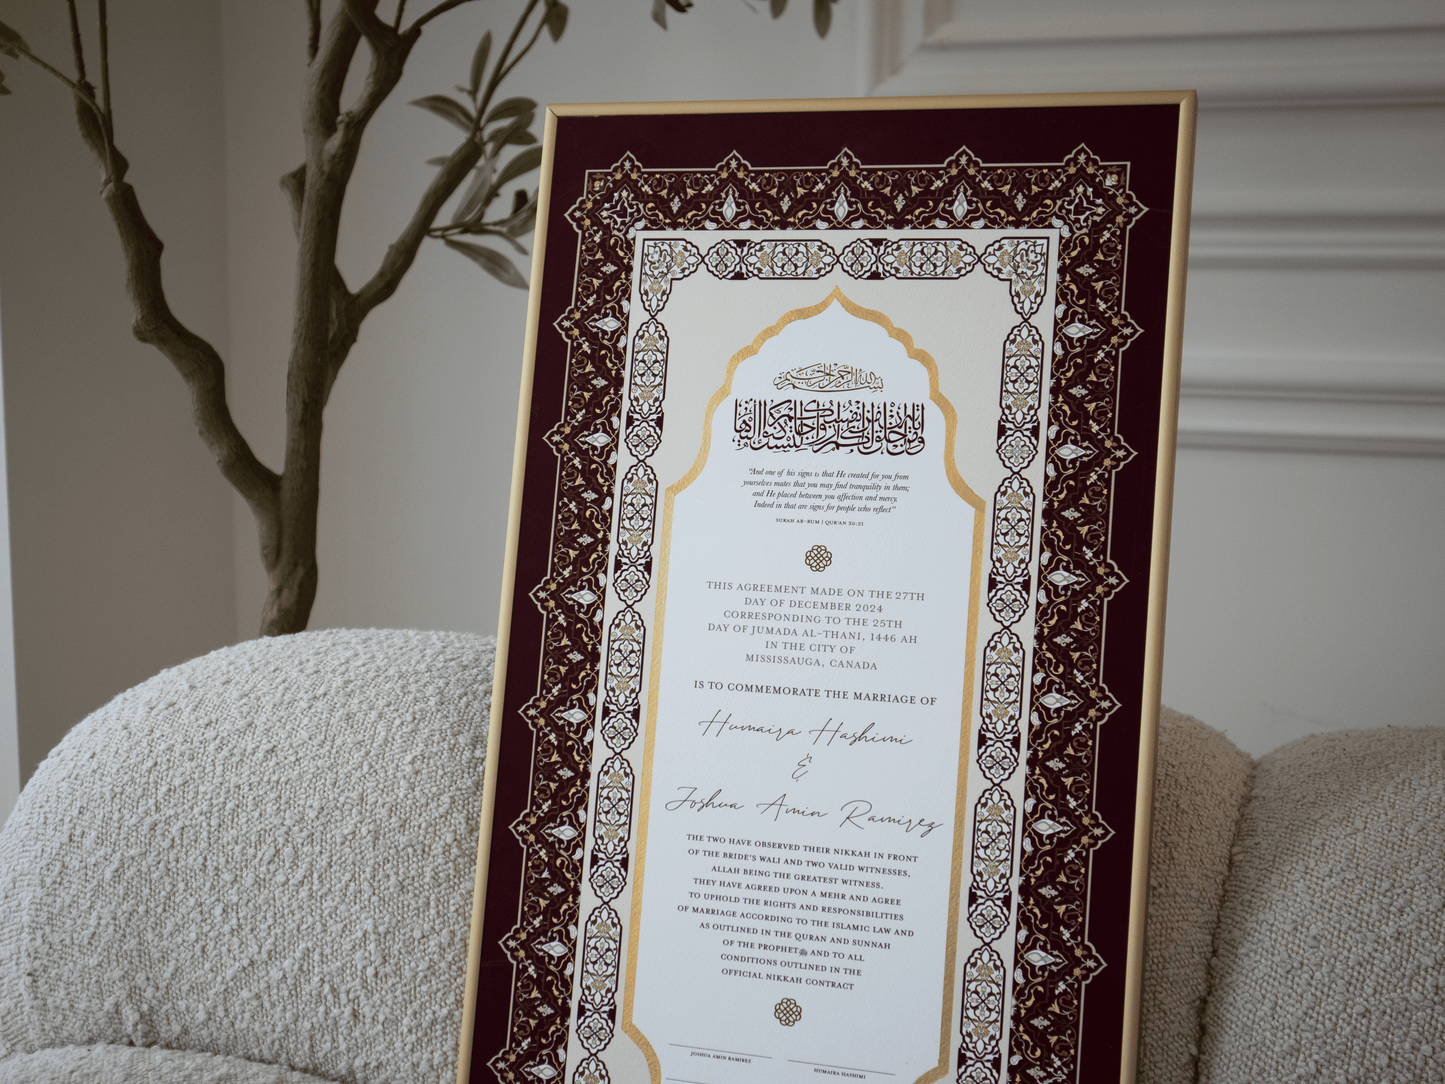 بسم الله الرحمن الرحيم
ومن آياته أن خلق لكم من أنفسكم أزواجا لتسكنوا إليها
"And one of his signs is that He created for you from
yourselves mates that you may find tranquility in them;
and He placed between you affection and mercy.
Indeed in that are signs for people who reflect"
SURAH AR-RUM | QUR'AN 30:21
THIS AGREEMENT MADE ON THE 27TH
DAY OF DECEMBER 2024
CORRESPONDING TO THE 25TH
DAY OF JUMADA AL-THANI, 1446 AH
IN THE CITY OF
MISSISSAUGA, CANADA
IS TO COMMEMORATE THE MARRIAGE OF
Humaira Hashimi
&
Joshua Amin Ramirez
THE TWO HAVE OBSERVED THEIR NIKKAH IN FRONT
OF THE BRIDE'S WALI AND TWO VALID WITNESSES,
ALLAH BEING THE GREATEST WITNESS.
THEY HAVE AGREED UPON A MEHR AND AGREE
TO UPHOLD THE RIGHTS AND RESPONSIBILITIES
OF MARRIAGE ACCORDING TO THE ISLAMIC LAW AND
AS OUTLINED IN THE QURAN AND SUNNAH
OF THE PROPHET ﷺ AND TO ALL
CONDITIONS OUTLINED IN THE
OFFICIAL NIKKAH CONTRACT
JOSHUA AMIN RAMIREZ
HUMAIRA HASHIMI